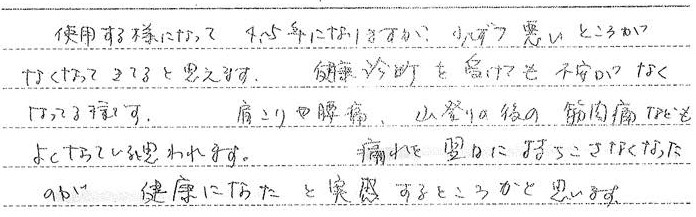 使用する様になって 4,5年になりますが、少しずつ悪いところが
なくなってきてると思えます。 健康診断を受けても不安がなく
なってる様です。 肩こりや腰痛、山登りの後の筋肉痛なども
よくなっている思われます。 疲れを翌日に持ちこさなくなった
のが 健康になった と実感するところかと思います。